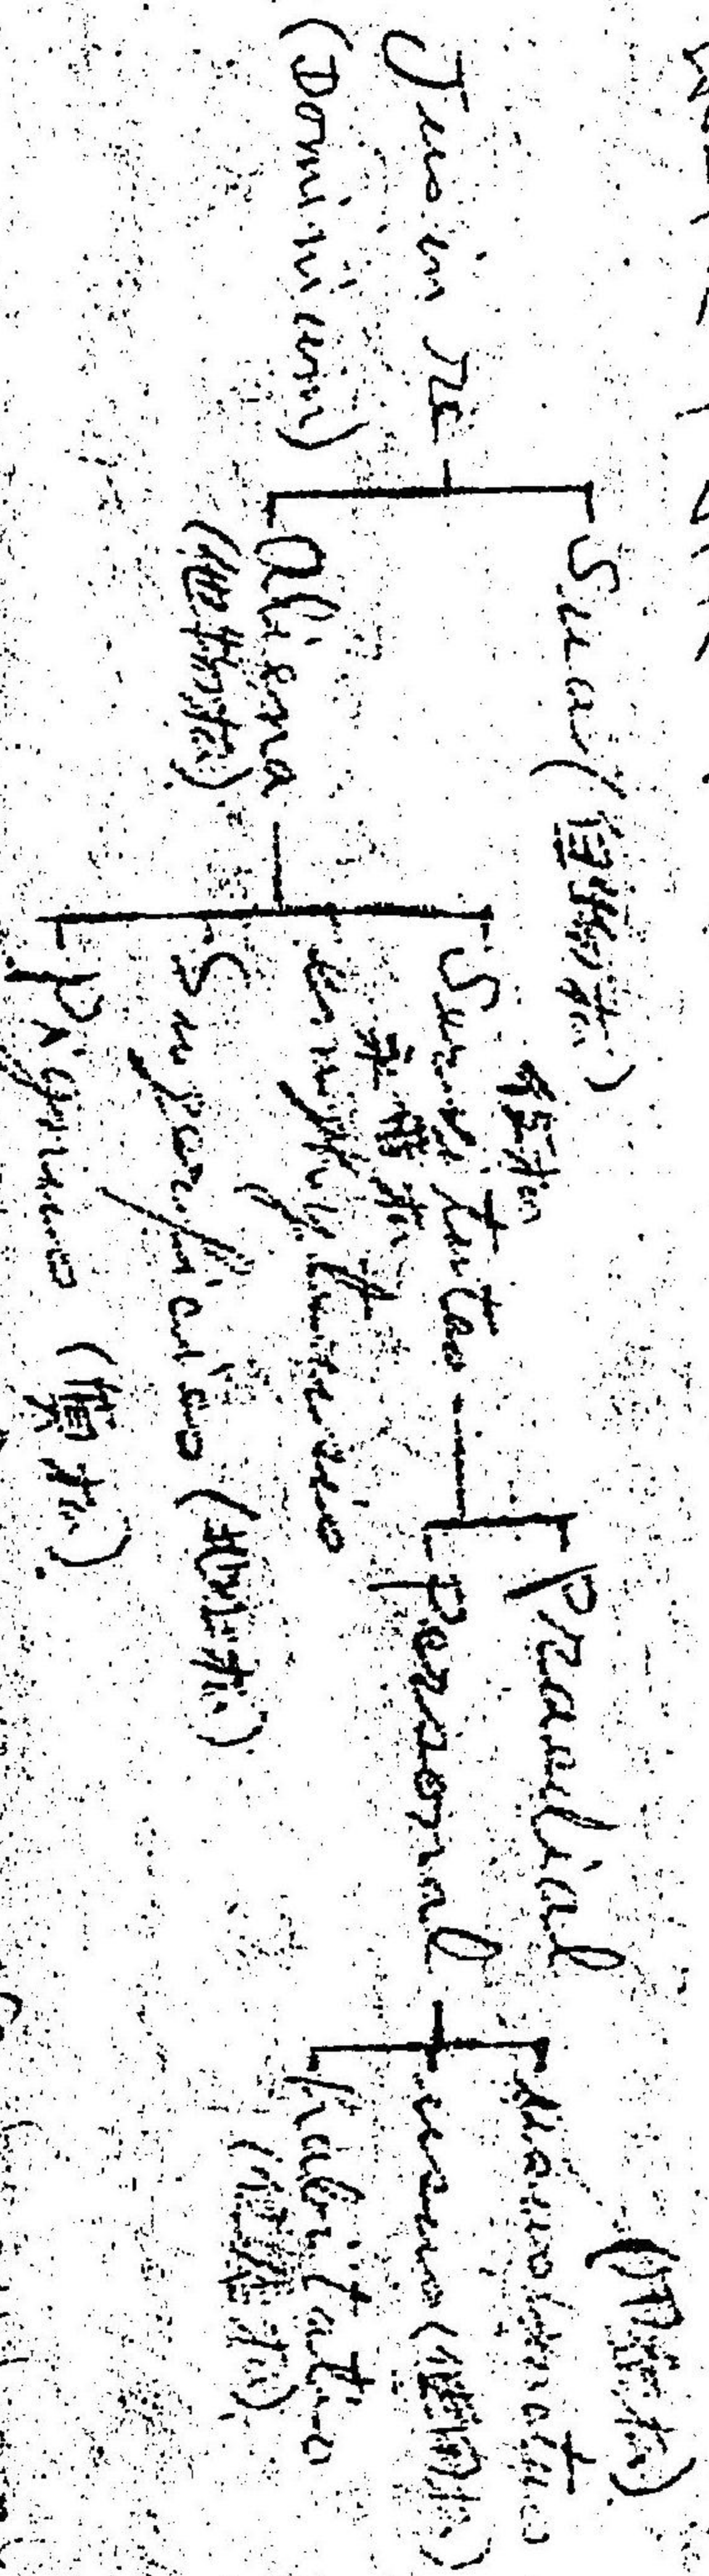 Jus in re
(Dominium)
Sua (自物权)
Aliena
(他物权)
役权
Servitutes
永借权
Emphyteusis
Superficies (地上权)
Pignus (質权)
Praedial
Personal
(用益权)
Ususfructus
usus (使用权)
habitatio
(住居权)